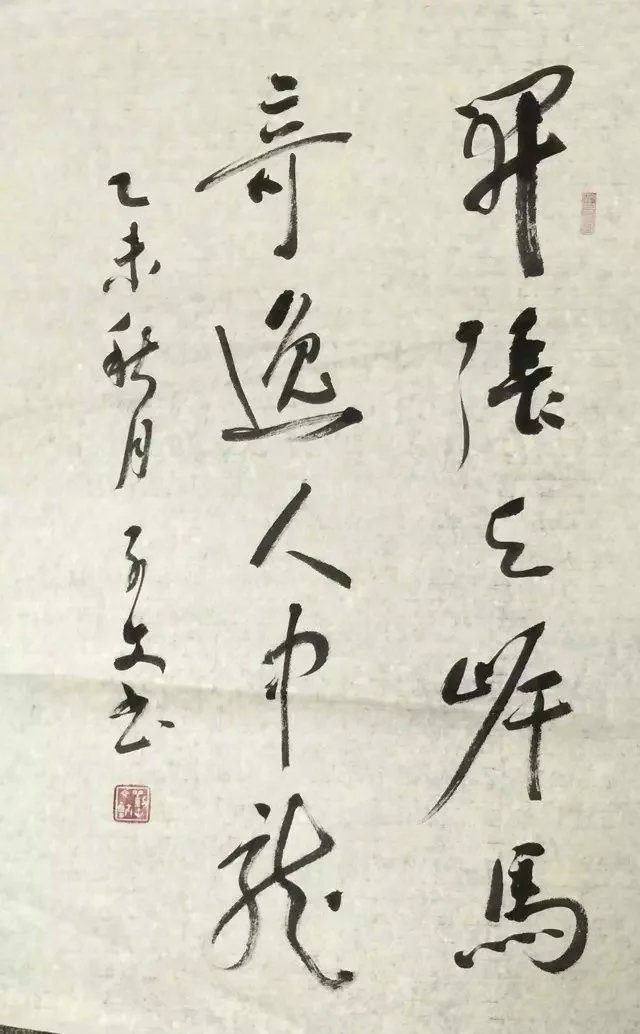 開張天岸馬
奇逸人中龍
乙未秋月 子文书